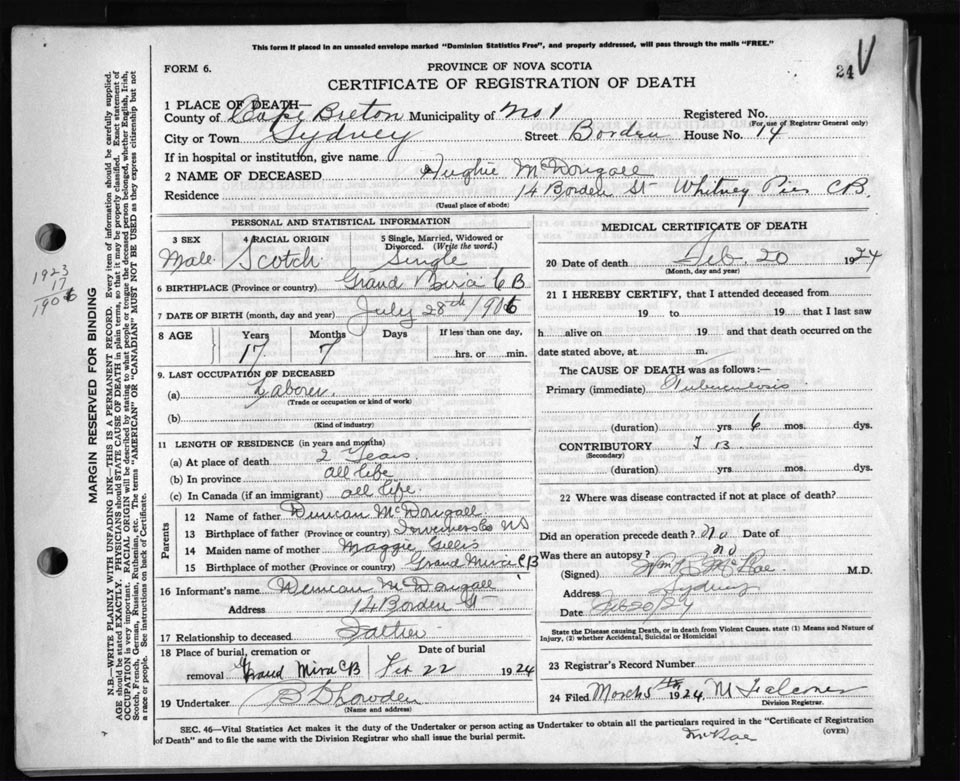 This form if placed in an unsealed envelope marked "Dominion Statistics Free", and properly addressed, will pass through the mails "FREE."
FORM 6.
PROVINCE OF NOVA SCOTIA
24 V
CERTIFICATE OF REGISTRATION OF DEATH
1 PLACE OF DEATH—
County of Cape Breton Municipality of No 1 Registered No.
(For use of Registrar General only)
City or Town Sydney Street Borden House No. 14
If in hospital or institution, give name
2 NAME OF DECEASED Hughie McDougall
Residence 14 Borden St Whitney Pier CB
(Usual place of abode)
PERSONAL AND STATISTICAL INFORMATION
3 SEX Male
4 RACIAL ORIGIN Scotch
5 Single, Married, Widowed or Divorced. (Write the word.) Single
6 BIRTHPLACE (Province or country) Grand Mira C B
7 DATE OF BIRTH (month, day and year) July 28th 1906
8 AGE Years 17 Months 7 Days If less than one day, hrs. or min.
9. LAST OCCUPATION OF DECEASED
(a) Laborer
(Trade or occupation or kind of work)
(b)
(Kind of industry)
11 LENGTH OF RESIDENCE (in years and months)
(a) At place of death 2 Years
(b) In province all life
(c) In Canada (if an immigrant) all life
Parents
12 Name of father Duncan McDougall
13 Birthplace of father (Province or country) Inverness Co NS
14 Maiden name of mother Maggie Gillis
15 Birthplace of mother (Province or country) Grand Mira C B
16 Informant's name Duncan McDougall
Address 14 Borden St
17 Relationship to deceased Father
18 Place of burial, cremation or removal Grand Mira CB Date of burial Feb 22 1924
19 Undertaker
(Name and address)
MEDICAL CERTIFICATE OF DEATH
20 Date of death Feb. 20 1924
(Month, day and year)
21 I HEREBY CERTIFY, that I attended deceased from
19 to 19 that I last saw
h alive on 19 and that death occurred on
date stated above, at m.
The CAUSE OF DEATH was as follows:—
Primary (immediate) Tuberculosis
(duration) yrs 6 mos. dys.
CONTRIBUTORY T B
(Secondary)
(duration) yrs mos. dys.
22 Where was disease contracted if not at place of death?
Did an operation precede death? No Date of
Was there an autopsy? no
(Signed) McRae M.D.
Address Sydney
Date Feb 20/24
State the Disease causing Death, or in death from Violent Causes. state (1) Means and Nature of
Injury, (2) whether Accidental, Suicidal or Homicidal
23 Registrar's Record Number
24 Filed March 5th 1924, M Falconer
Division Registrar.
SEC. 46—Vital Statistics Act makes it the duty of the Undertaker or person acting as Undertaker to obtain all the particulars required in the "Certificate of Registration
of Death" and to file the same with the Division Registrar who shall issue the burial permit.
(OVER)
McRae
1923
17
1906
MARGIN RESERVED FOR BINDING
N.B.—WRITE PLAINLY WITH UNFADING INK—THIS IS A PERMANENT RECORD. Every item of information should be carefully supplied.
AGE should be stated EXACTLY. PHYSICIANS should STATE CAUSE OF DEATH in plain terms, so that it may be properly classified. Exact statement of
OCCUPATION is very important. RACIAL ORIGIN will be described by stating to what people or tongue the deceased person belonged, whether English, Irish,
Scotch, French, German, Russian, Ruthenian, etc. The terms "AMERICAN" OR "CANADIAN" MUST NOT BE USED as they express citizenship but not
a race or people. See instructions on back of Certificate.